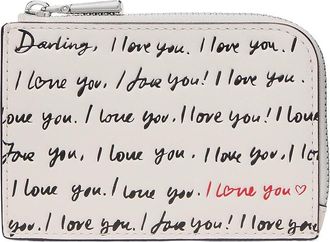 Darling, I love you. I love you. I
I love you, I love you! I love you.
love you. I love you. I love you! I love
Darling, I love you, I love you. I love you.
I love you. I love you. I love you♡
you. I love you. I love you! I love you.